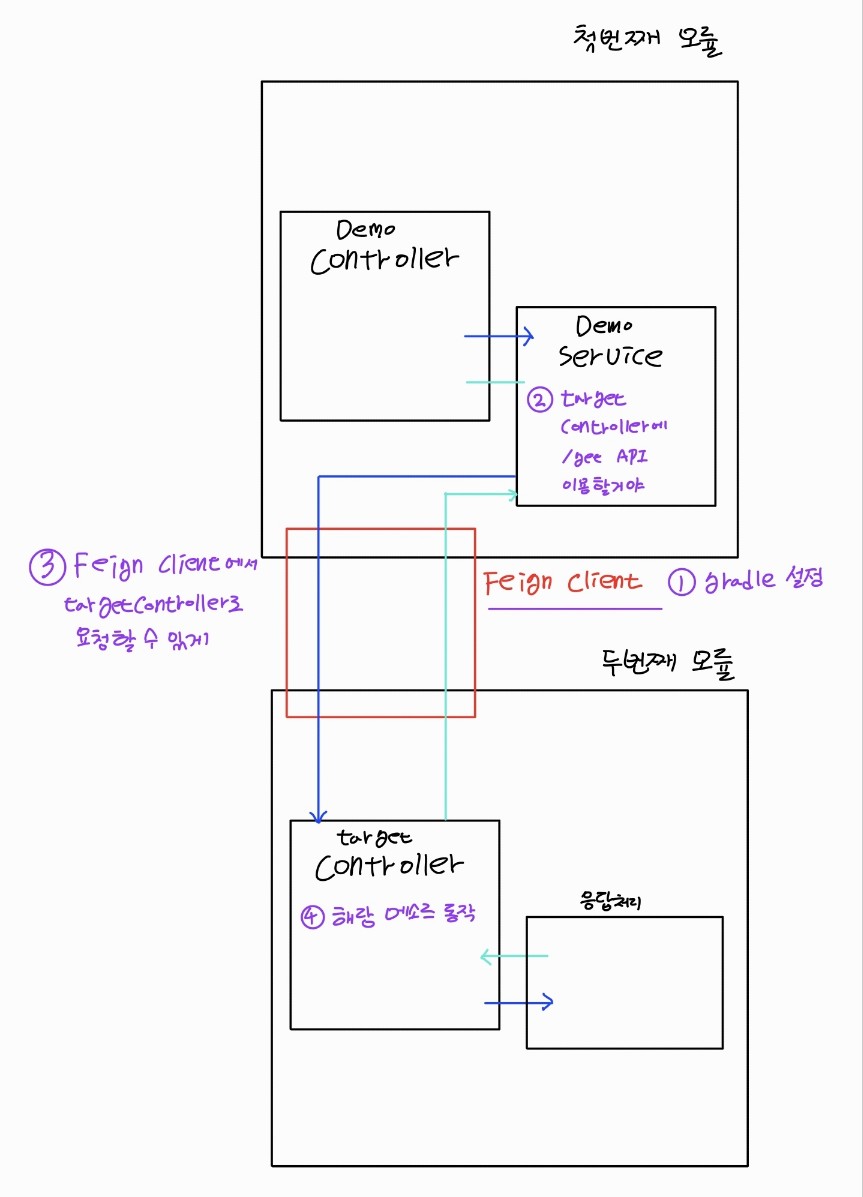 첫번째 모듈
Demo
Controller
Demo
Service
② target
Controller에
/get API
이용할거야
③ Feign Client에서
targetController로
요청할 수 있게
Feign Client ① gradle 설정
두번째 모듈
target
Controller
④ 해당 메소드 동작
응답처리